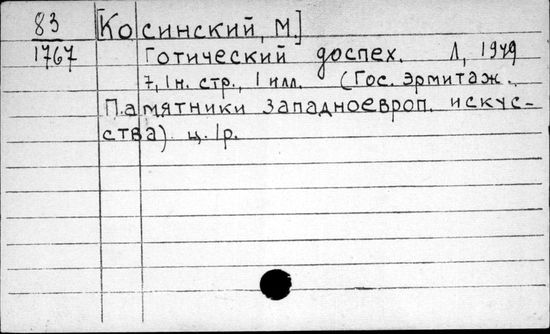 83 [Косинский, М.]
1767 Готический доспех. Л, 1949
7, 1 н. стр., 1 илл. (Гос. эрмитаж.
Памятники западноевроп. искус-
ства) ц. 1р.